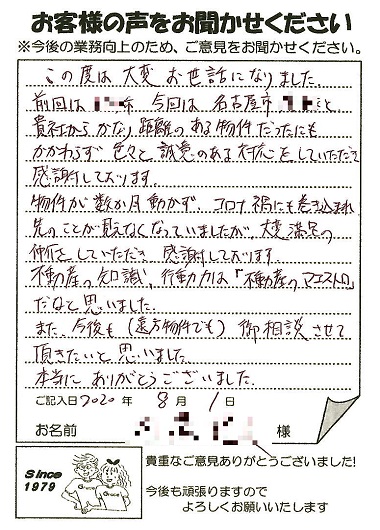 お客様の声をお聞かせください
※今後の業務向上のため、ご意見をお聞かせください。
この度は大変お世話になりました。
前回は 市 今回は名古屋市 と
貴社からかなり距離のある物件だったにも
かかわらず色々と誠意のある対応をしていただき
感謝しております。
物件が数か月動かず、コロナ禍にも巻き込まれ
先のことが見えなくなっていましたが、大変満足の
仲介をしていただき感謝しております
不動産の知識、行動力は「不動産のマエストロ」
だなと思いました。
また、今後も(遠方物件でも)御相談させて
頂きたいと思いました。
本当にありがとうございました。
ご記入日 2020 年 8 月 1 日
お名前 様
貴重なご意見ありがとうございました!
Since
1979
今後も頑張りますので
よろしくお願いいたします